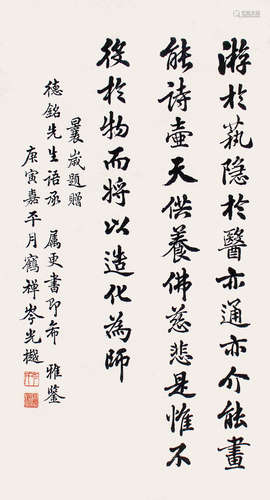 游於藝隐於醫亦通亦介能畫
能詩壺天供養佛慈悲是惟不
役於物而將以造化為師
曩歲題贈
德銘先生語承 屬更書即希 雅鑒
庚寅嘉平月鶴禅岑光樾